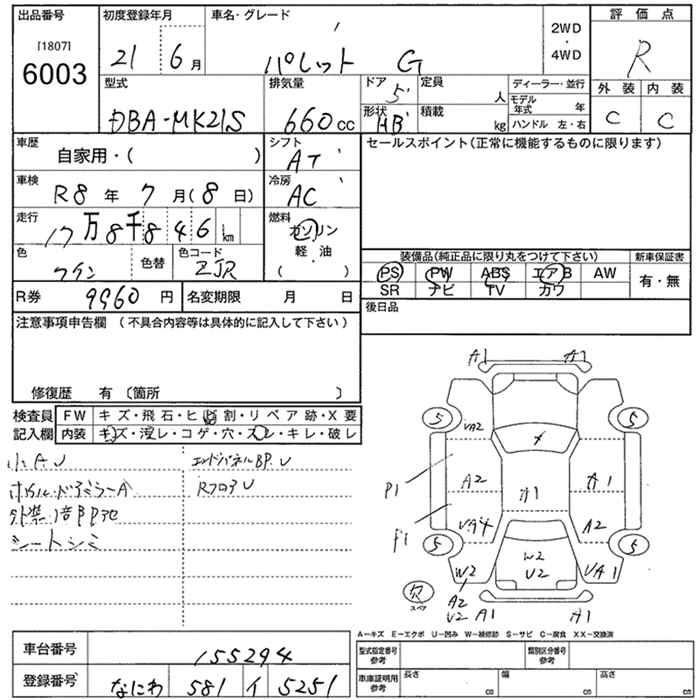 出品番号 初度登録年月 車名・グレード 2WD・4WD 評価点
[1807]
6003 21 6月 パレット G R
外装 内装
C C
型式 排気量 ドア 定員 ディーラー・並行
DBA-MK21S 660cc 5 人 モデル年式 年
形状 積載 ハンドル 左・右
HB kg
車歴 自家用・( ) シフト AT セールスポイント(正常に機能するものに限ります)
車検 R8年7月(8日) 冷房 AC
走行 17万8千846km 燃料 ガソリン
軽・油
( )
色 ワイン 色替 色コード ZJR
装備品(純正品に限り丸をつけて下さい) 新車保証書
PS PW ABS エアB AW 有・無
SR ナビ TV カワ
R券 9960円 名変期限 月 日 後日品
注意事項申告欄 (不具合内容等は具体的に記入して下さい)
修復歴 有〔箇所 〕
検査員 FW キズ・飛石・ヒビ割・リペア跡・X要
記入欄 内装 キズ・汚レ・コゲ・穴・スレ・キレ・破レ
小キズ.A.U エンドパネルBP.U
ホイル・ドアミラーA RフロアU
シートシミ
A1 A1
5 5
UA2
A2 A1
P1 A1
P1 A2
5 5
W2 W2 UA1
U2
欠 スペア
A2
U2 A1 A1
A-キズ E-エクボ U-凹み W-補修跡 S-サビ C-腐食 XX-交換済
車台番号 155294 型式指定番号 参考 類別区分番号 参考
登録番号 なにわ 581 イ 5251 車庫証明用 参考 長さ cm 幅 cm 高さ cm